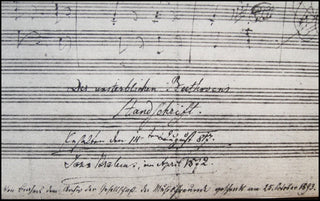 Des unsterblichen Beethovens
Handschrift.
Erhalten den 14ten August 817.
Brahms, im April 1872.
von Brahms dem Archiv der Gesellschaft der Musikfreunde geschenkt am 25. October 1893.